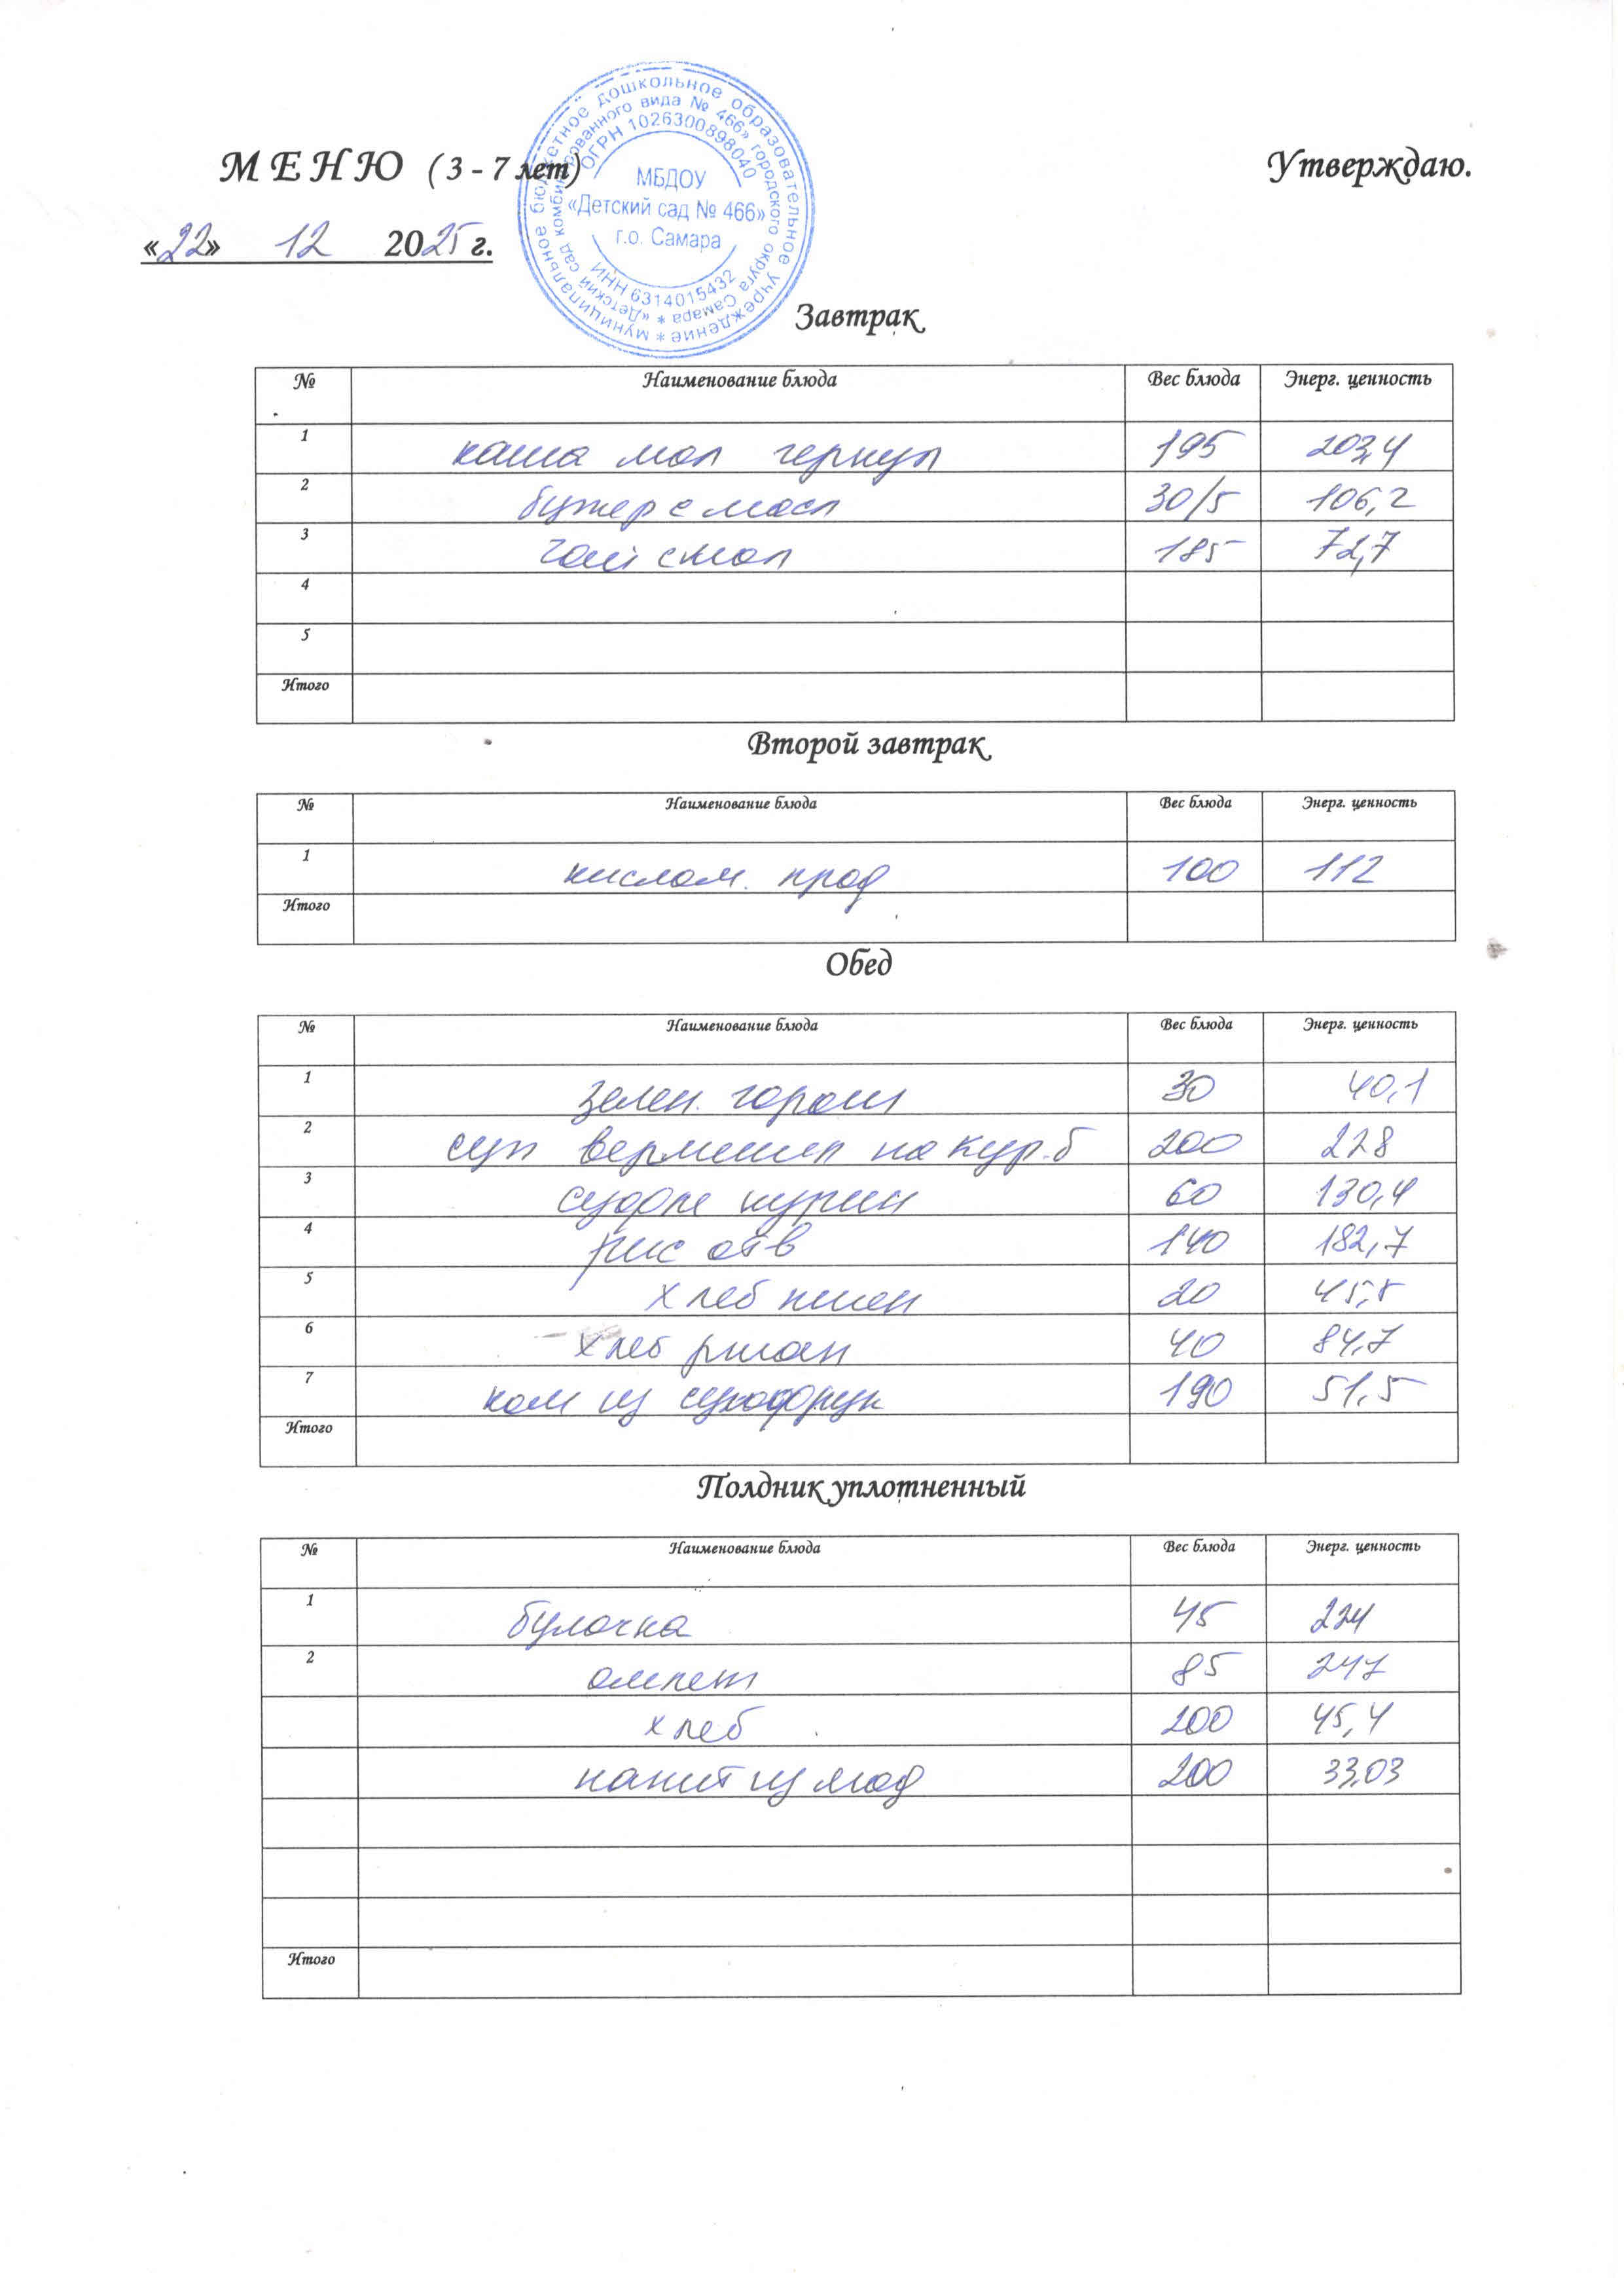 муниципальное бюджетное дошкольное образовательное учреждение *
«Детский сад комбинированного вида № 466» городского округа Самара *
ОГРН 1026300898040
МБДОУ
«Детский сад № 466»
г.о. Самара
ИНН 6314015432
МЕНЮ (3 - 7 лет)
Утверждаю.
«22» 12 2025 г.
Завтрак
№ Наименование блюда Вес блюда Энерг. ценность
1 каша мол геркул 195 203,4
2 бутер с масл 30/5 106,2
3 чай с мол 185 72,7
4
5
Итого
Второй завтрак
№ Наименование блюда Вес блюда Энерг. ценность
1 кислом. прод 100 112
Итого
Обед
№ Наименование блюда Вес блюда Энерг. ценность
1 зелен. горош 30 40,1
2 суп вермишел на кур.б 200 228
3 суфле курин 60 130,4
4 рис отв 140 182,7
5 хлеб пшен 20 45,8
6 хлеб ржан 40 84,7
7 ком из сухофрук 190 51,5
Итого
Полдник уплотненный
№ Наименование блюда Вес блюда Энерг. ценность
1 булочка 45 224
2 омлет 85 247
хлеб 200 45,4
напит из ягод 200 33,03
Итого